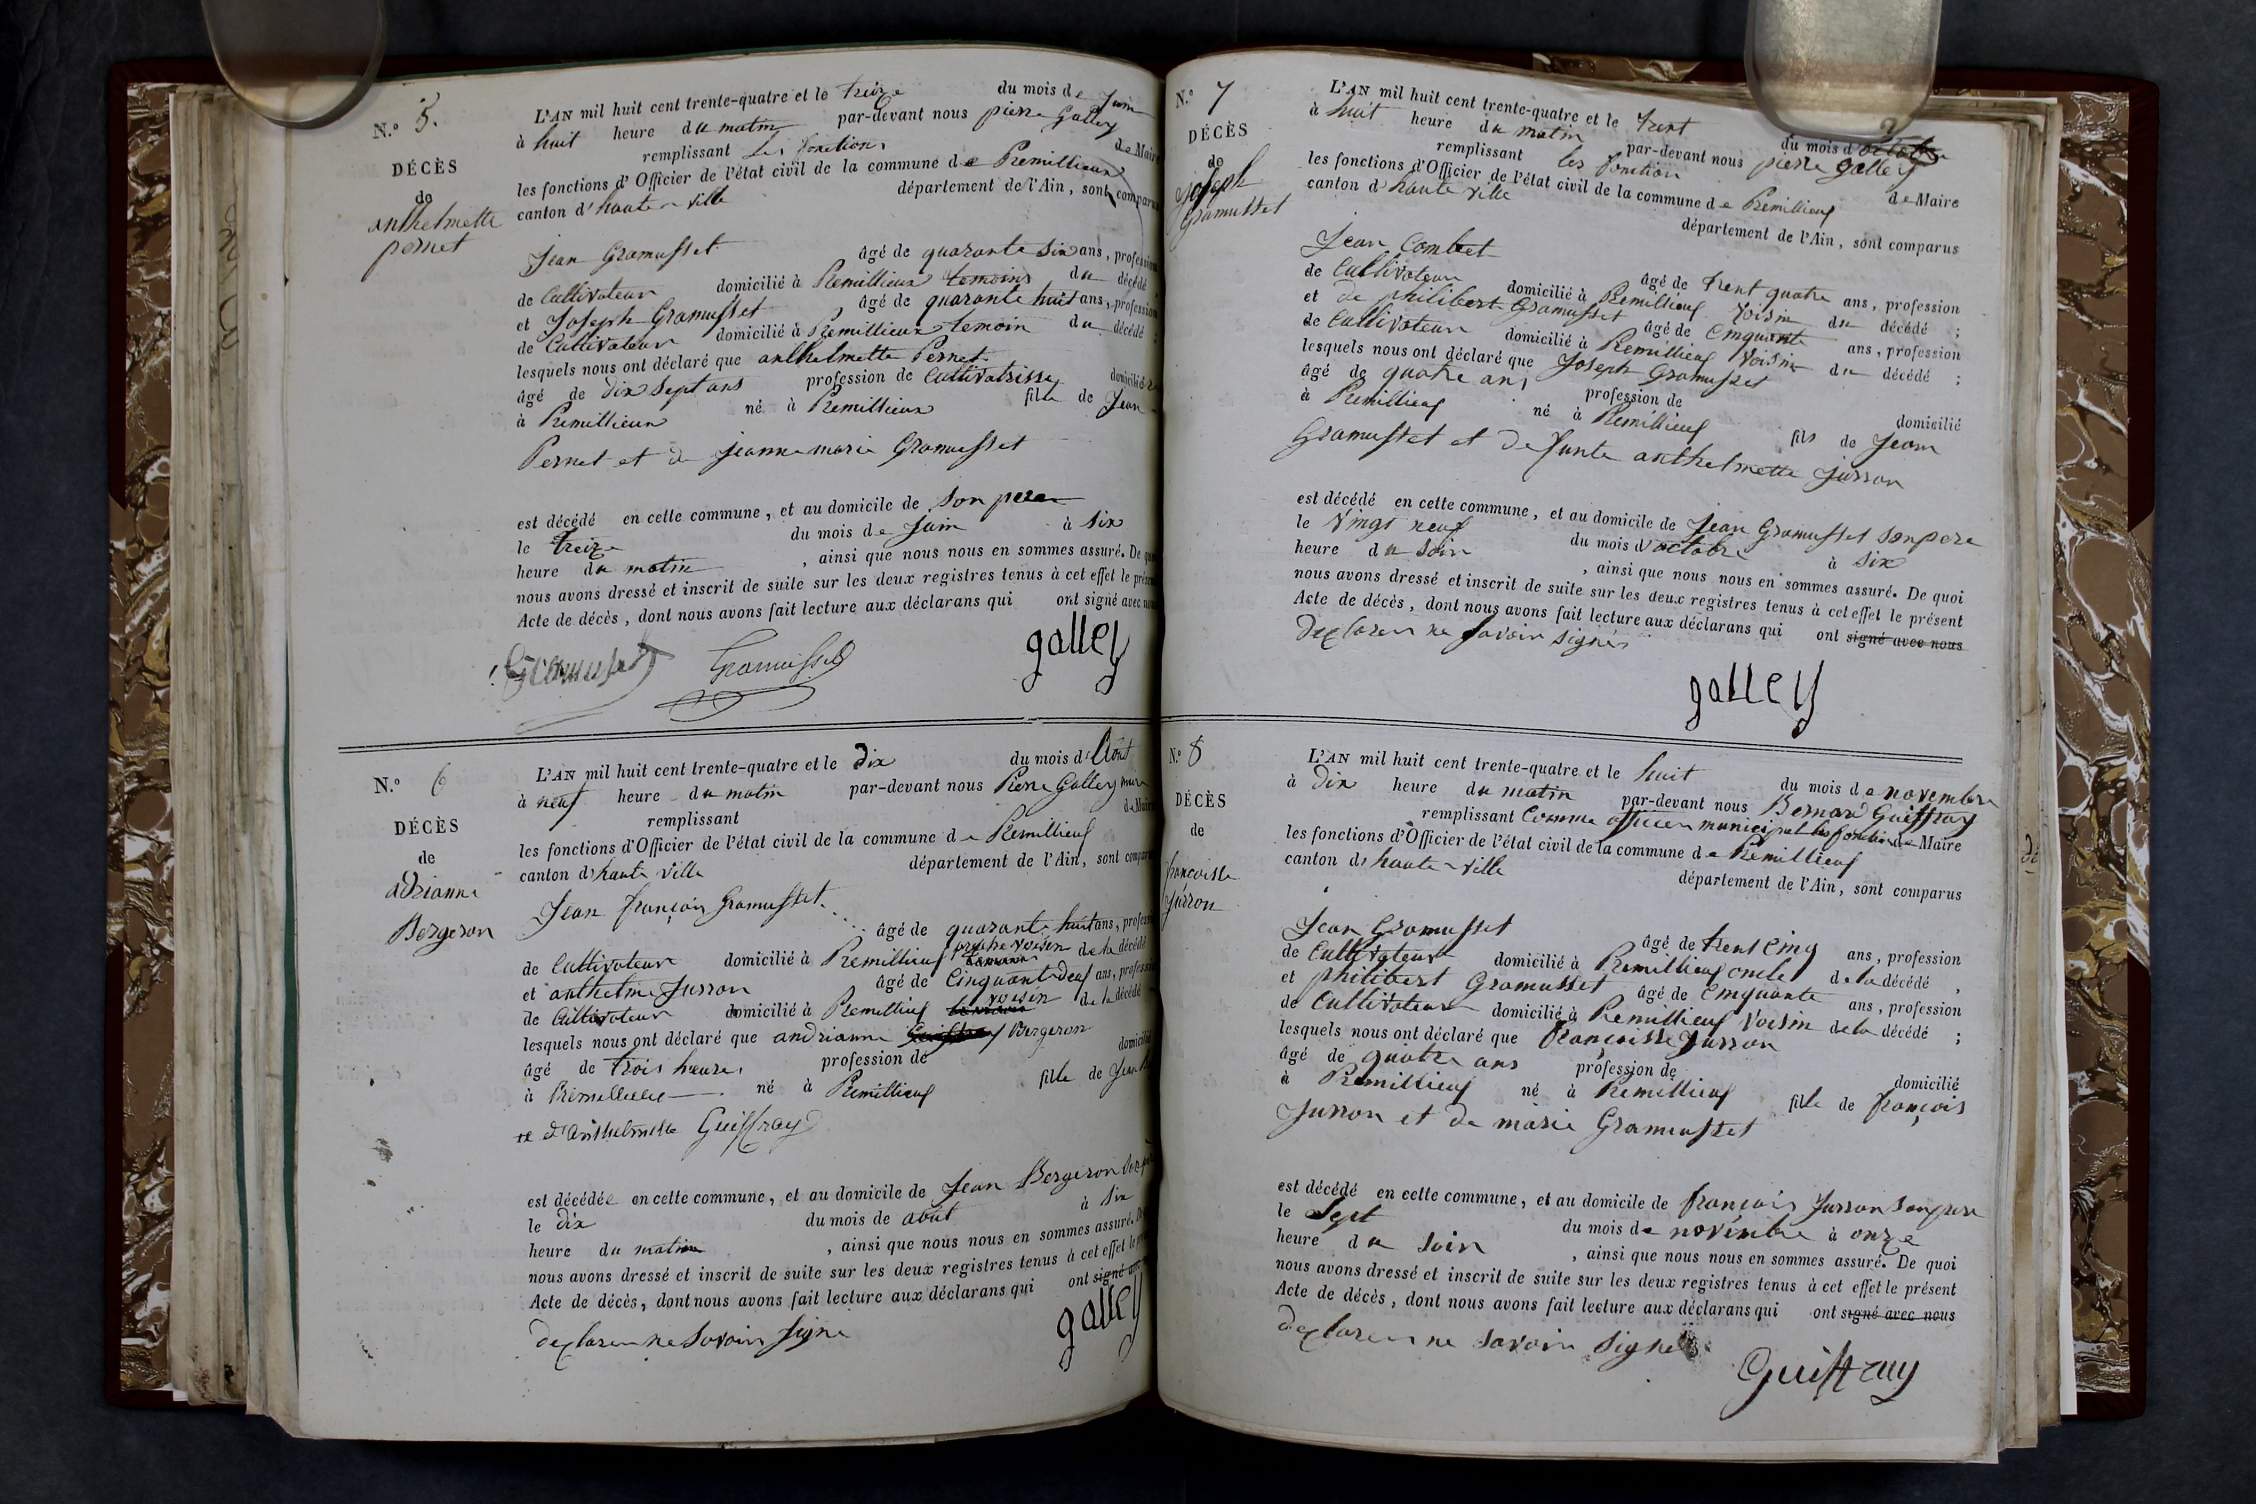 N.° 5.
DÉCÈS
de
anthelmette
pernet
L'AN mil huit cent trente-quatre et le treize du mois de Juin
à huit heure du matin par-devant nous pierre Galley
remplissant les fonctions de Maire
les fonctions d'Officier de l'état civil de la commune de Premillieux
canton d'hauteville département de l'Ain, sont comparus
Jean Gramusset âgé de quarante six ans, profession
de Cultivateur domicilié à Premillieux temoins du décédé
et Joseph Gramusset, âgé de quarante huit ans, profession
de Cultivateur domicilié à Premillieux temoin du décédé ;
lesquels nous ont déclaré que anthelmette Pernet
âgé de dix sept ans profession de Cultivatrisse domicilié
à Premillieux né à Premillieux fille de Jean
Pernet et de jeanne marie Gramusset
est décédé en cette commune, et au domicile de son pere
le treize du mois de Juin à six
heure du matin, ainsi que nous nous en sommes assuré. De
nous avons dressé et inscrit de suite sur les deux registres tenus à cet effet le
Acte de décès, dont nous avons fait lecture aux déclarans qui ont signé avec
Gramusset Gramusset galley
N.° 6
DÉCÈS
de
adrianne
Bergeron
L'AN mil huit cent trente-quatre et le dix du mois d'Aout
à neuf heure du matin par-devant nous Pierre Galley maire
remplissant de Maire
les fonctions d'Officier de l'état civil de la commune de Premillieuf
canton d'hauteville département de l'Ain, sont
Jean françois Gramusset
âgé de quarante huit ans,
de Cultivateur domicilié à Premillieuf voisin de la décédé
et anthelme Jurron âgé de Cinquante deuf ans,
de Cultivateur domicilié à Premillieuf voisin de la décédé
lesquels nous ont déclaré que andrianne Bergeron
âgé de trois heures profession de
à Premillieu né à Premillieuf fille de Jean
et d'anthelmette Guiffray
est décédée en cette commune, et au domicile de Jean Bergeron
le dix du mois de about à six
heure du matin, ainsi que nous nous en sommes assuré.
nous avons dressé et inscrit de suite sur les deux registres tenus à cet effet le
Acte de décès, dont nous avons fait lecture aux déclarans qui ont signé
declaren ne savoir signe galley
N.° 7
DÉCÈS
de
joseph
Gramusset
L'AN mil huit cent trente-quatre et le trent du mois d'octobre
à huit heure du matin par-devant nous pierre galley
remplissant les fonction de Maire
les fonctions d'Officier de l'état civil de la commune de Premillieuf
canton d'hauteville département de l'Ain, sont comparus
Jean Combet âgé de trent quatre ans, profession
de Cultivateur domicilié à Premillieuf voisin du décédé ;
et de philibert Gramusset âgé de Cinquante ans, profession
de Cultivateur domicilié à Premillieuf voisin du décédé ;
lesquels nous ont déclaré que Joseph Gramusset
âgé de quatre ans profession de domicilié
à Premillieuf né à Premillieuf fils de Jean
Gramusset et defunte anthelmette Jurron
est décédé en cette commune, et au domicile de Jean Gramusset son pere
le vingt neuf du mois d'octobre à six
heure du soir, ainsi que nous nous en sommes assuré. De quoi
nous avons dressé et inscrit de suite sur les deux registres tenus à cet effet le présent
Acte de décès, dont nous avons fait lecture aux déclarans qui ont signé avec nous
declaren ne savoir signer
galley
N.° 8
DÉCÈS
de
francoisse
Jurron
L'AN mil huit cent trente-quatre et le huit du mois de novembre
à dix heure du matin par-devant nous Bernard Guiffray
remplissant Comme officier municipal les fonction de Maire
les fonctions d'Officier de l'état civil de la commune de Premillieuf
canton d'hauteville département de l'Ain, sont comparus
Jean Gramusset âgé de trent Cinq ans, profession
de Cultivateur domicilié à Premillieuf oncle de la décédé ,
et philibert Gramusset âgé de Cinquante ans, profession
de Cultivateur domicilié à Premillieuf voisin de la décédé ;
lesquels nous ont déclaré que françoisse Jurron
âgé de quatre ans profession de domicilié
à Premillieuf né à Premillieuf fille de françois
Jurron et de marie Gramusset
est décédé en cette commune, et au domicile de françois Jurron son pere
le Sept du mois de novembre à onze
heure du soir, ainsi que nous nous en sommes assuré. De quoi
nous avons dressé et inscrit de suite sur les deux registres tenus à cet effet le présent
Acte de décès, dont nous avons fait lecture aux déclarans qui ont signé avec nous
declaren ne savoir signer
Guiffray